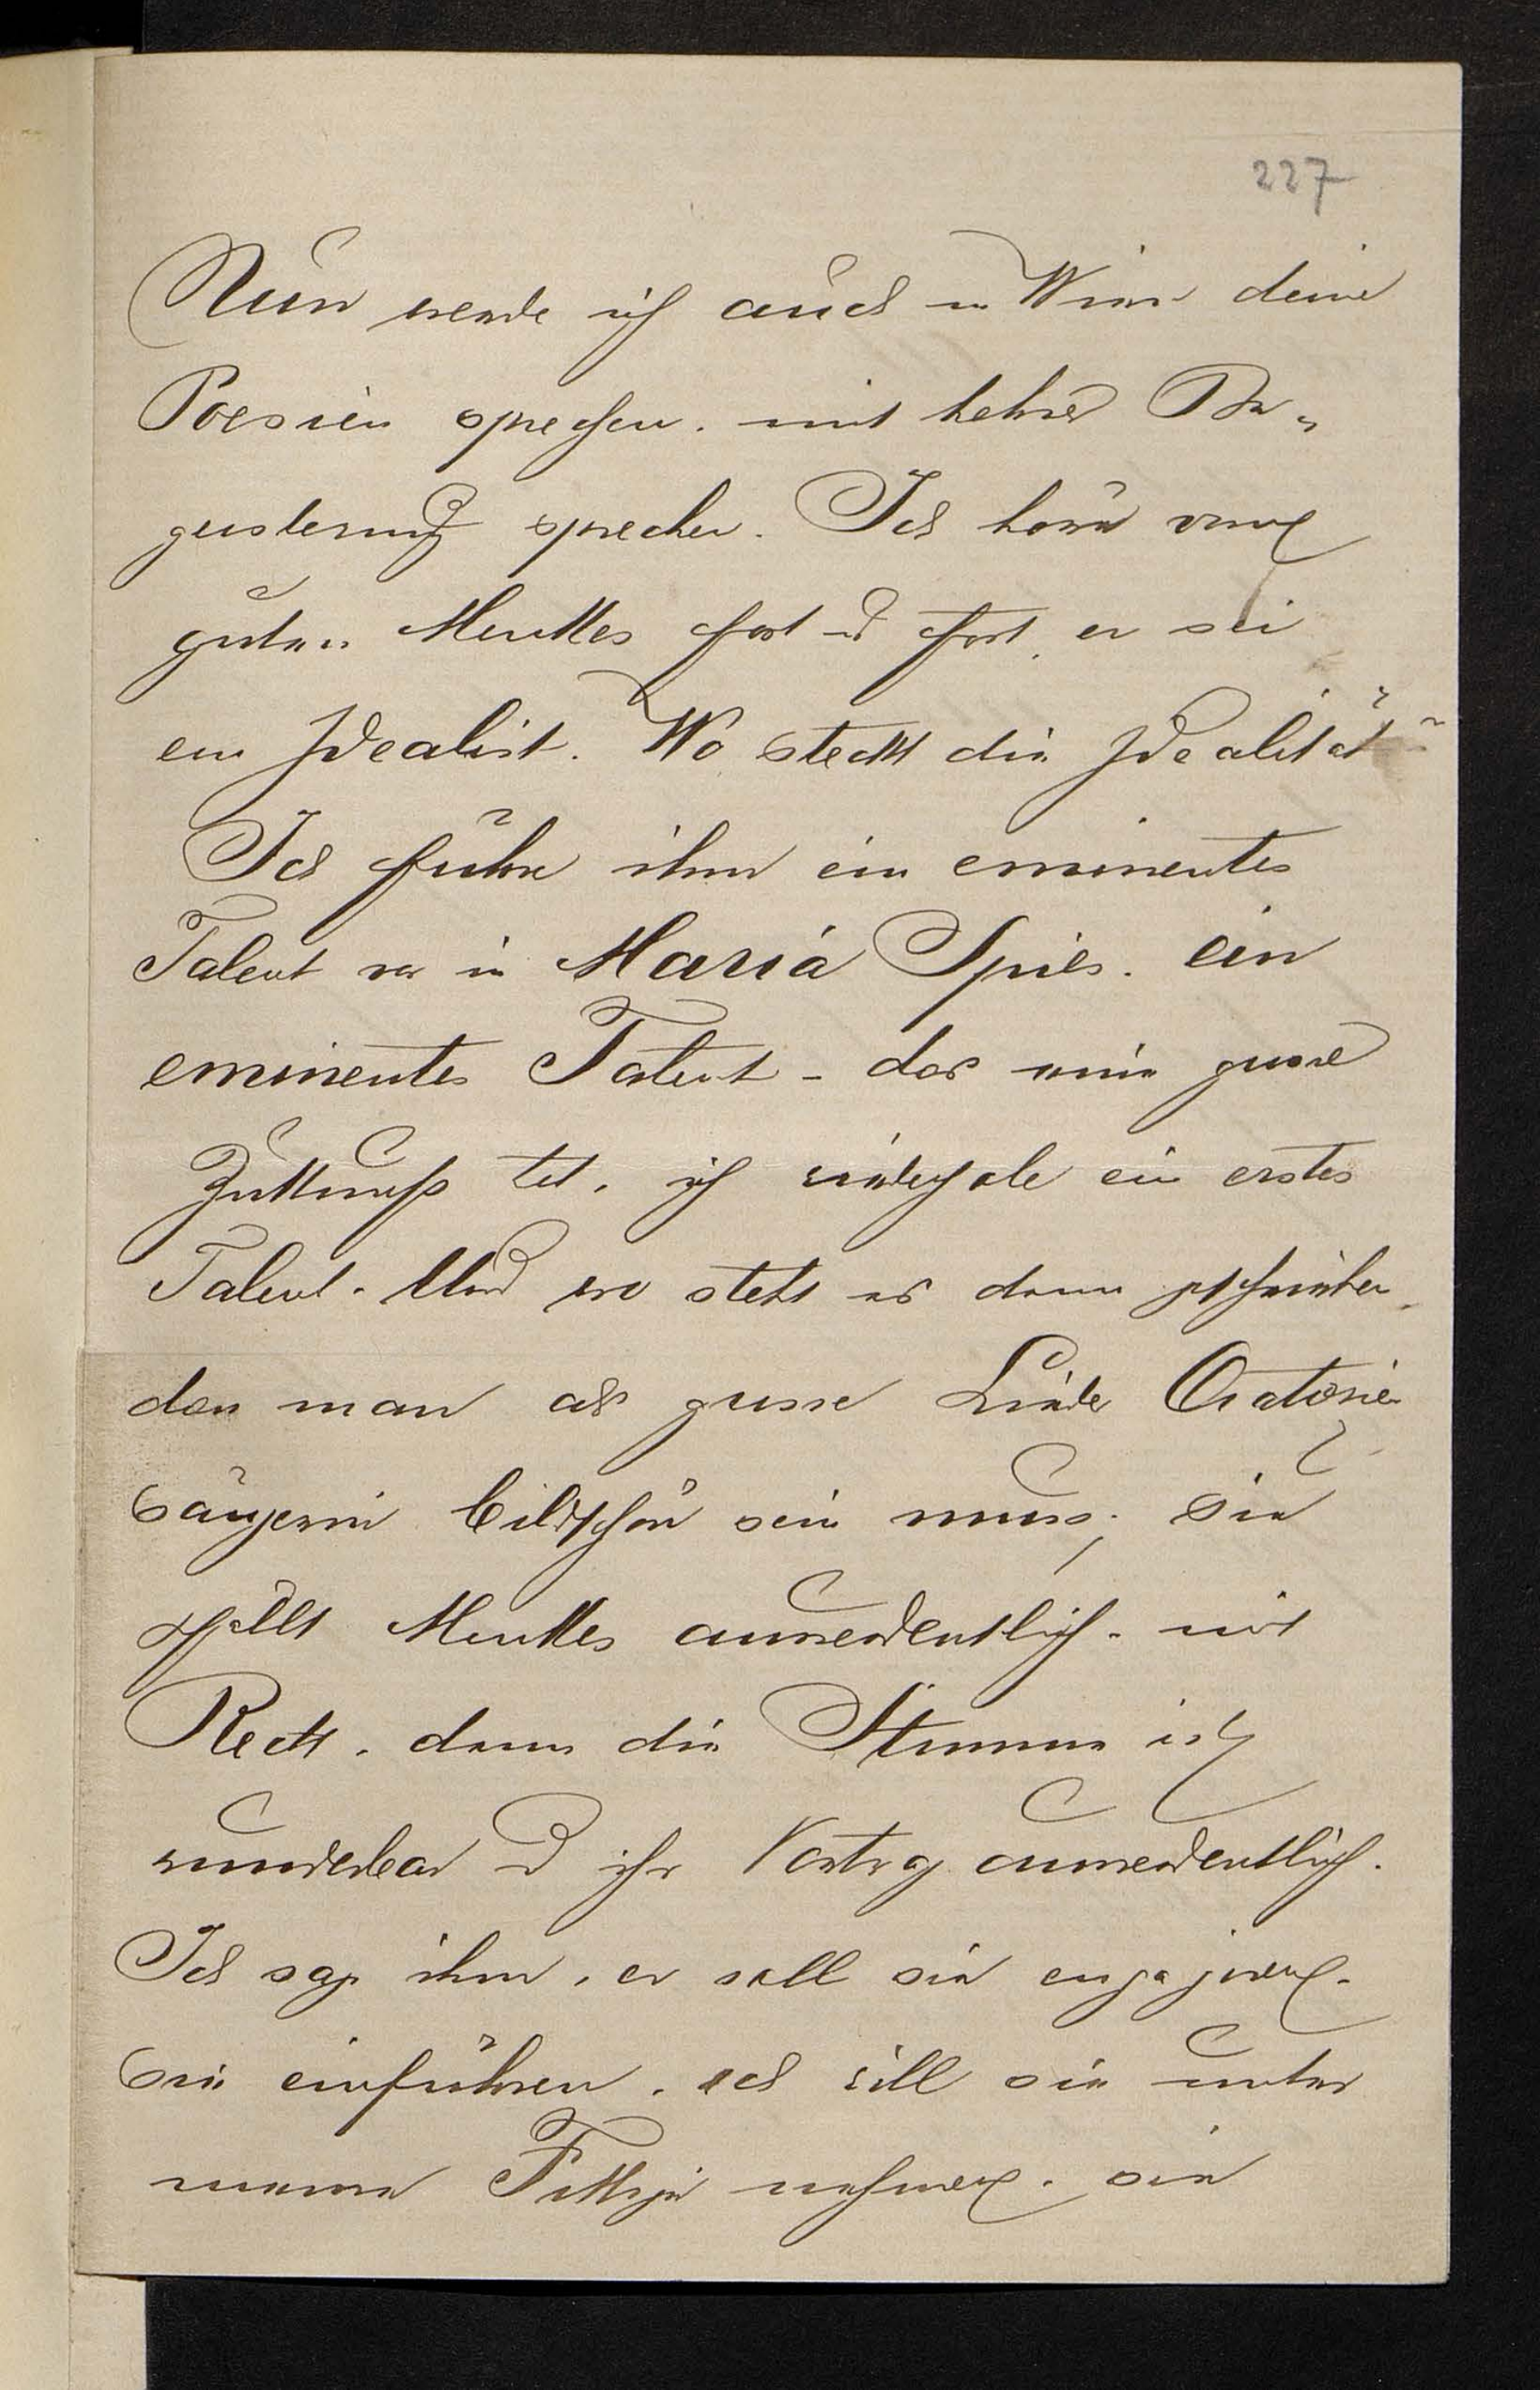 227
Nun werde ich auch in Wien deine
Poesien sprechen. mit hehrer Be„
geisterung sprechen. Ich höre vom
guten Menkes fort u fort, er sei
ein Idealist. Wo steckt die Idealität?
Ich führe ihm ein eminentes
Talent vor in Maria Spies. ein
eminentes Talent – das eine grosse
Zukunft hat. ich wiederhole ein erstes
Talent. Und wo steht es denn geschrieben,
dass man als grosse Lieder Oratorien
sängerin bildschön sein muss; Sie
gefällt Menkes ausserordentlich. mit
Recht. denn die Stimme ist
wunderbar u ihr Vortrag ausserordentlich.
Ich sage ihm, er soll sie engagieren.
Sie einführen. ich will sie unter
meine Fittige nehmen. sie